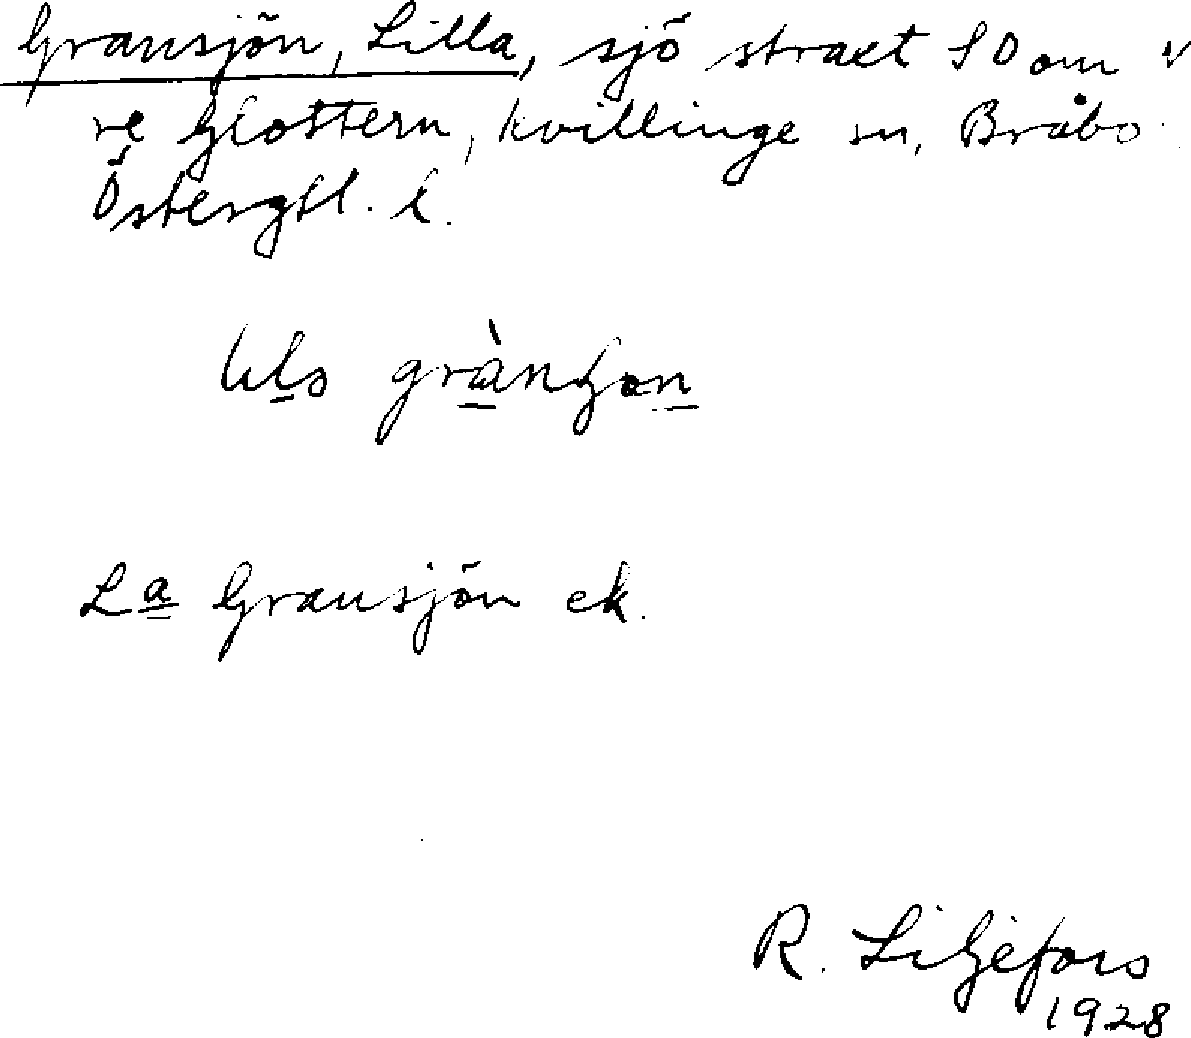 Gransjön, Lilla, sjö straxt SO om v
re Glottern, Kvillinge sn, Bråbo
Östergtl. l.
grànʃon
La Gransjön ek.
R. Liljefors
1928